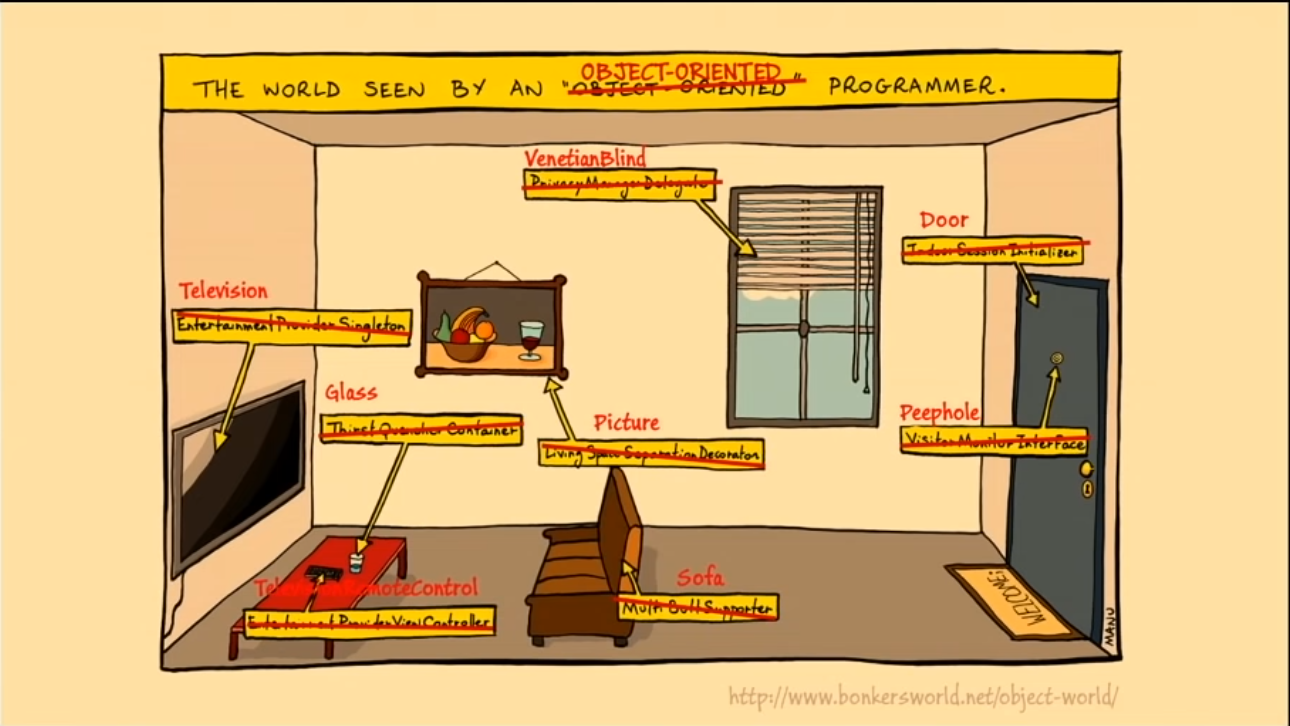 OBJECT-ORIENTED
THE WORLD SEEN BY AN "OBJECT-ORIENTED" PROGRAMMER.
VenetianBlind
PrivacyManagerDelegate
Door
Indoor Session Initializer
Television
Entertainment Provider Singleton
Glass
Thirst Quencher Container
Picture
Living Space Separation Decorator
Peephole
Visitor Monitor Interface
TelevisionRemoteControl
Entertainment Provider View Controller
Sofa
Multi Butt Supporter
WELCOME!
MANU
http://www.bonkersworld.net/object-world/